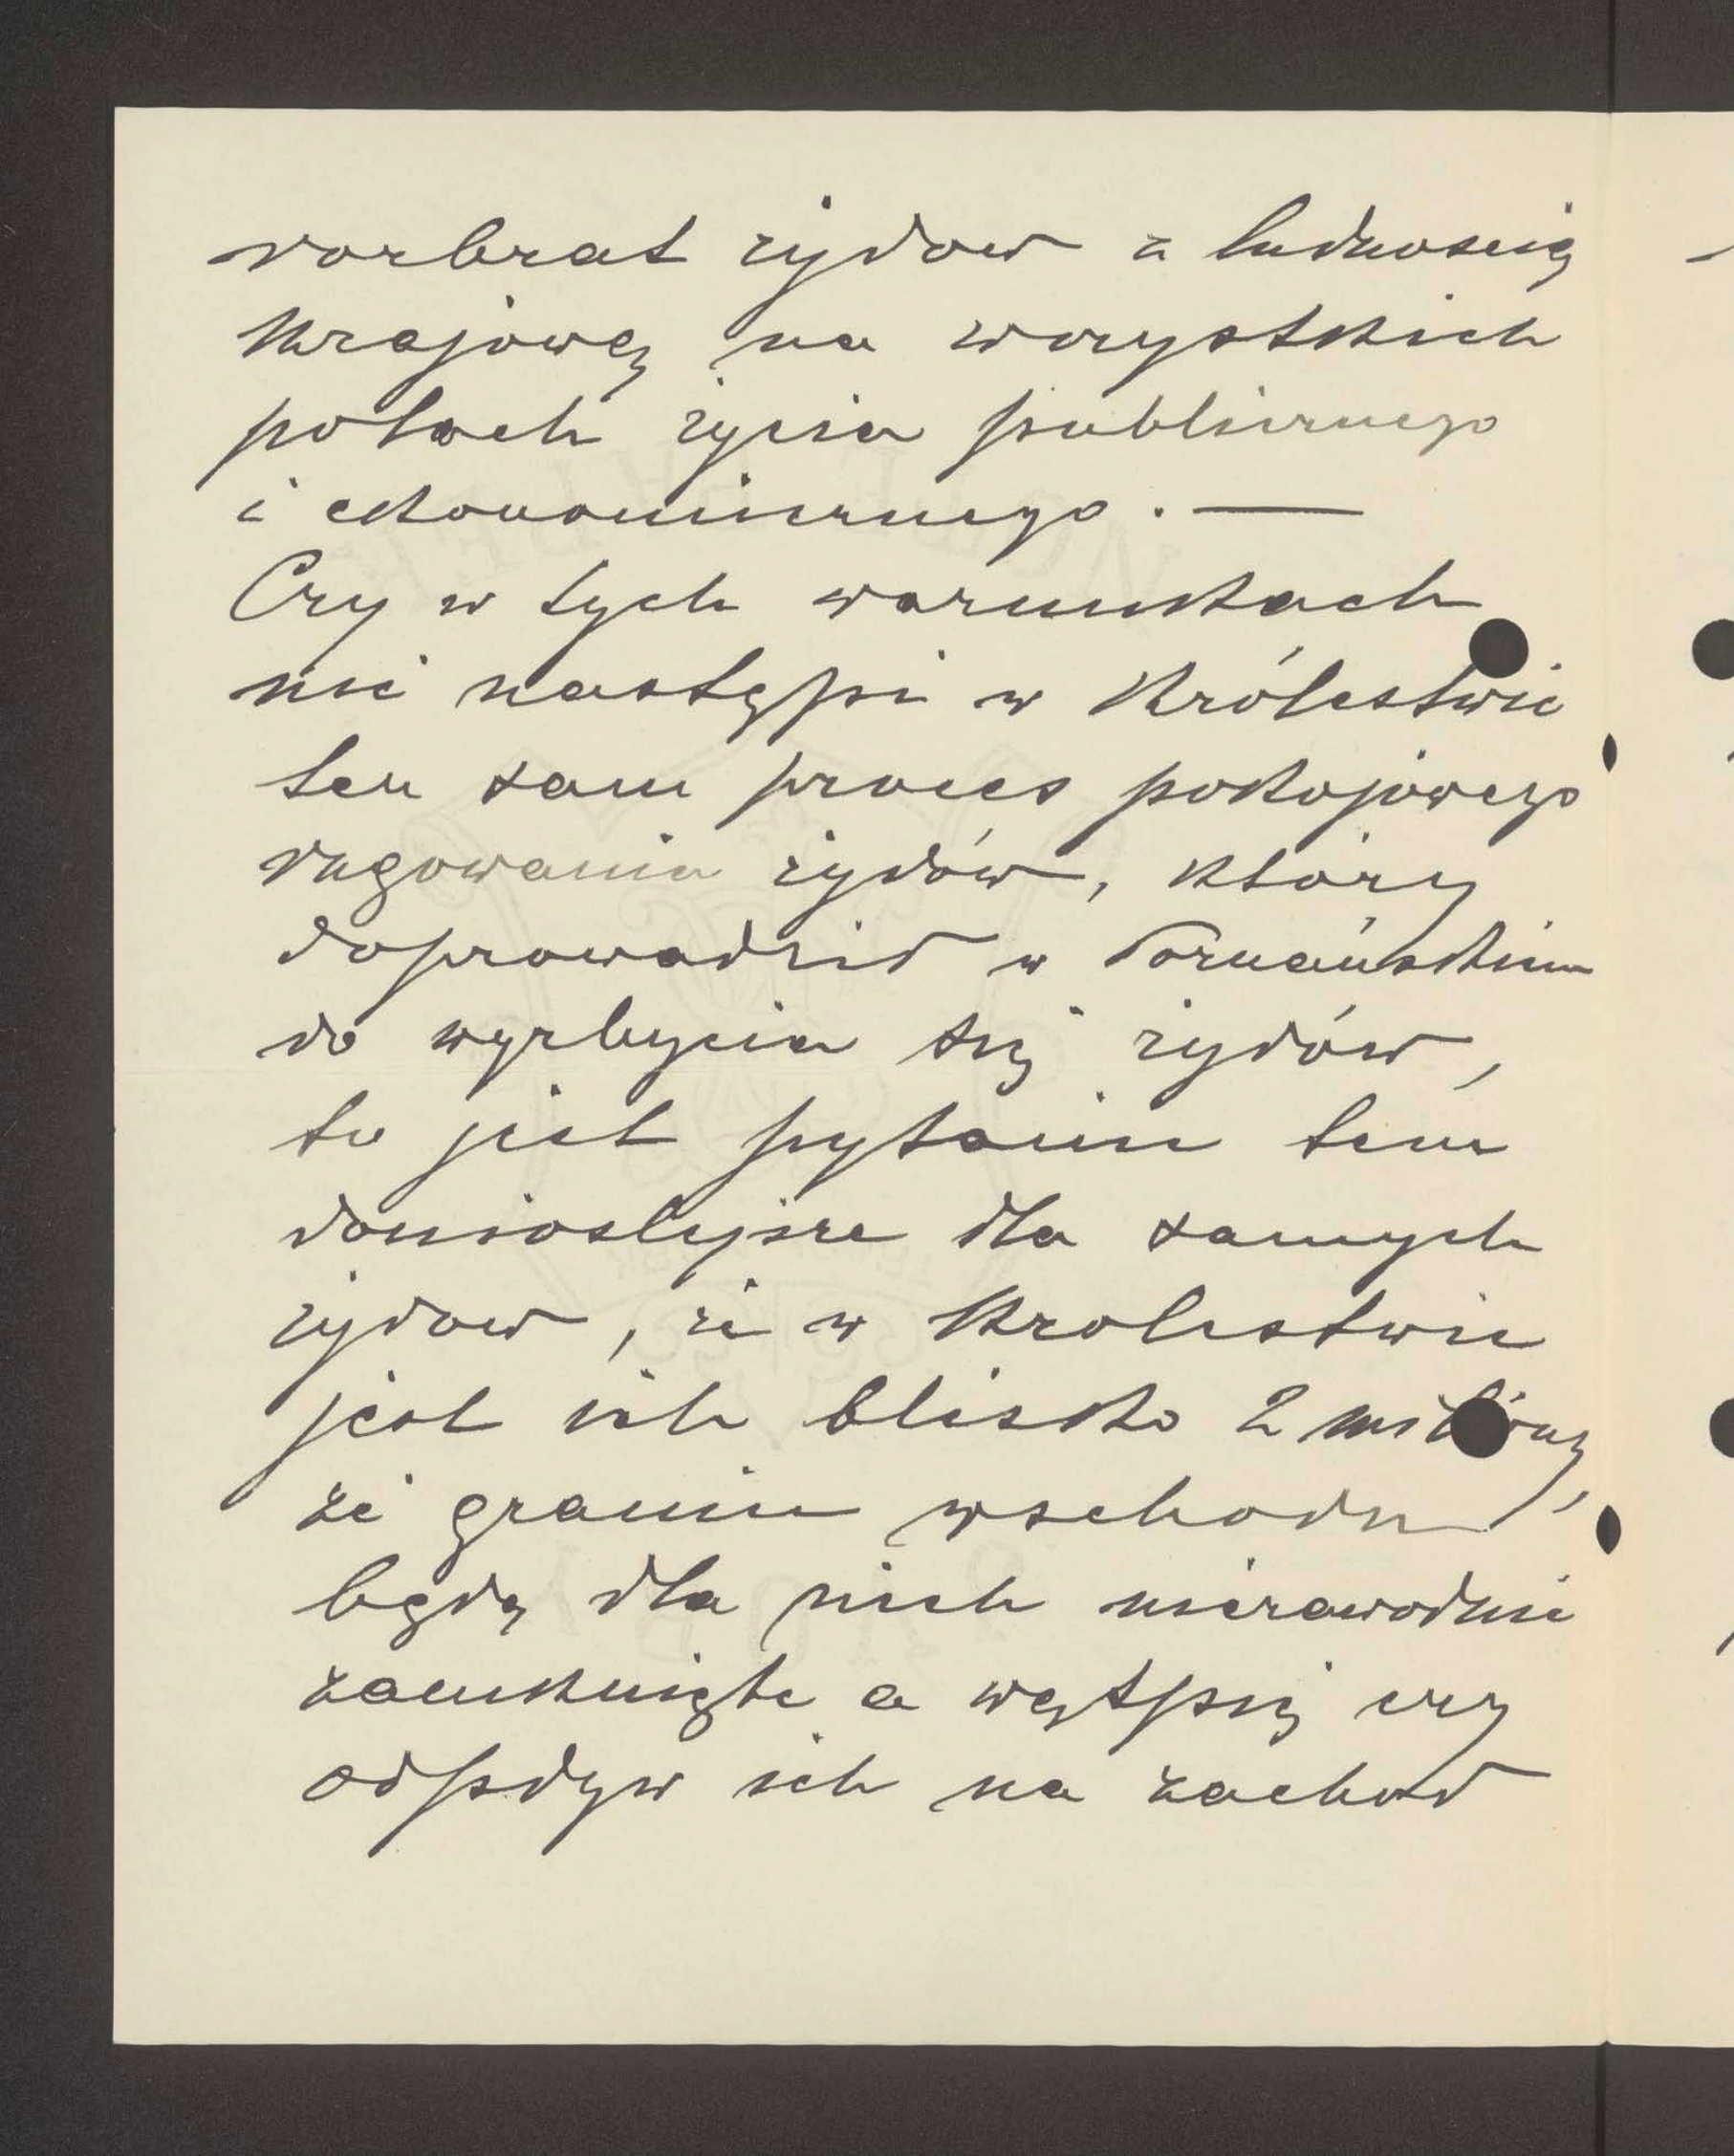 rozbrat żydow z ludnoscią
Krajową na wszystkich
polach życia publicznego
i ekonomicznego. —
Czy w tych warunkach
nie nastąpi w Królestwie
ten sam proces pokojowego
rugowania żydów, który
doprowadził w Poznańskim
do wyzbycia się żydów,
to jest pytanie tem
donioslejsze dla samych
żydow, że w Krolestwie
jest ich blisko 2 miliony,
że granice wschodu
będą dla nich niezawodnie
zamknięte a wątpię czy
odpływ ich na zachod